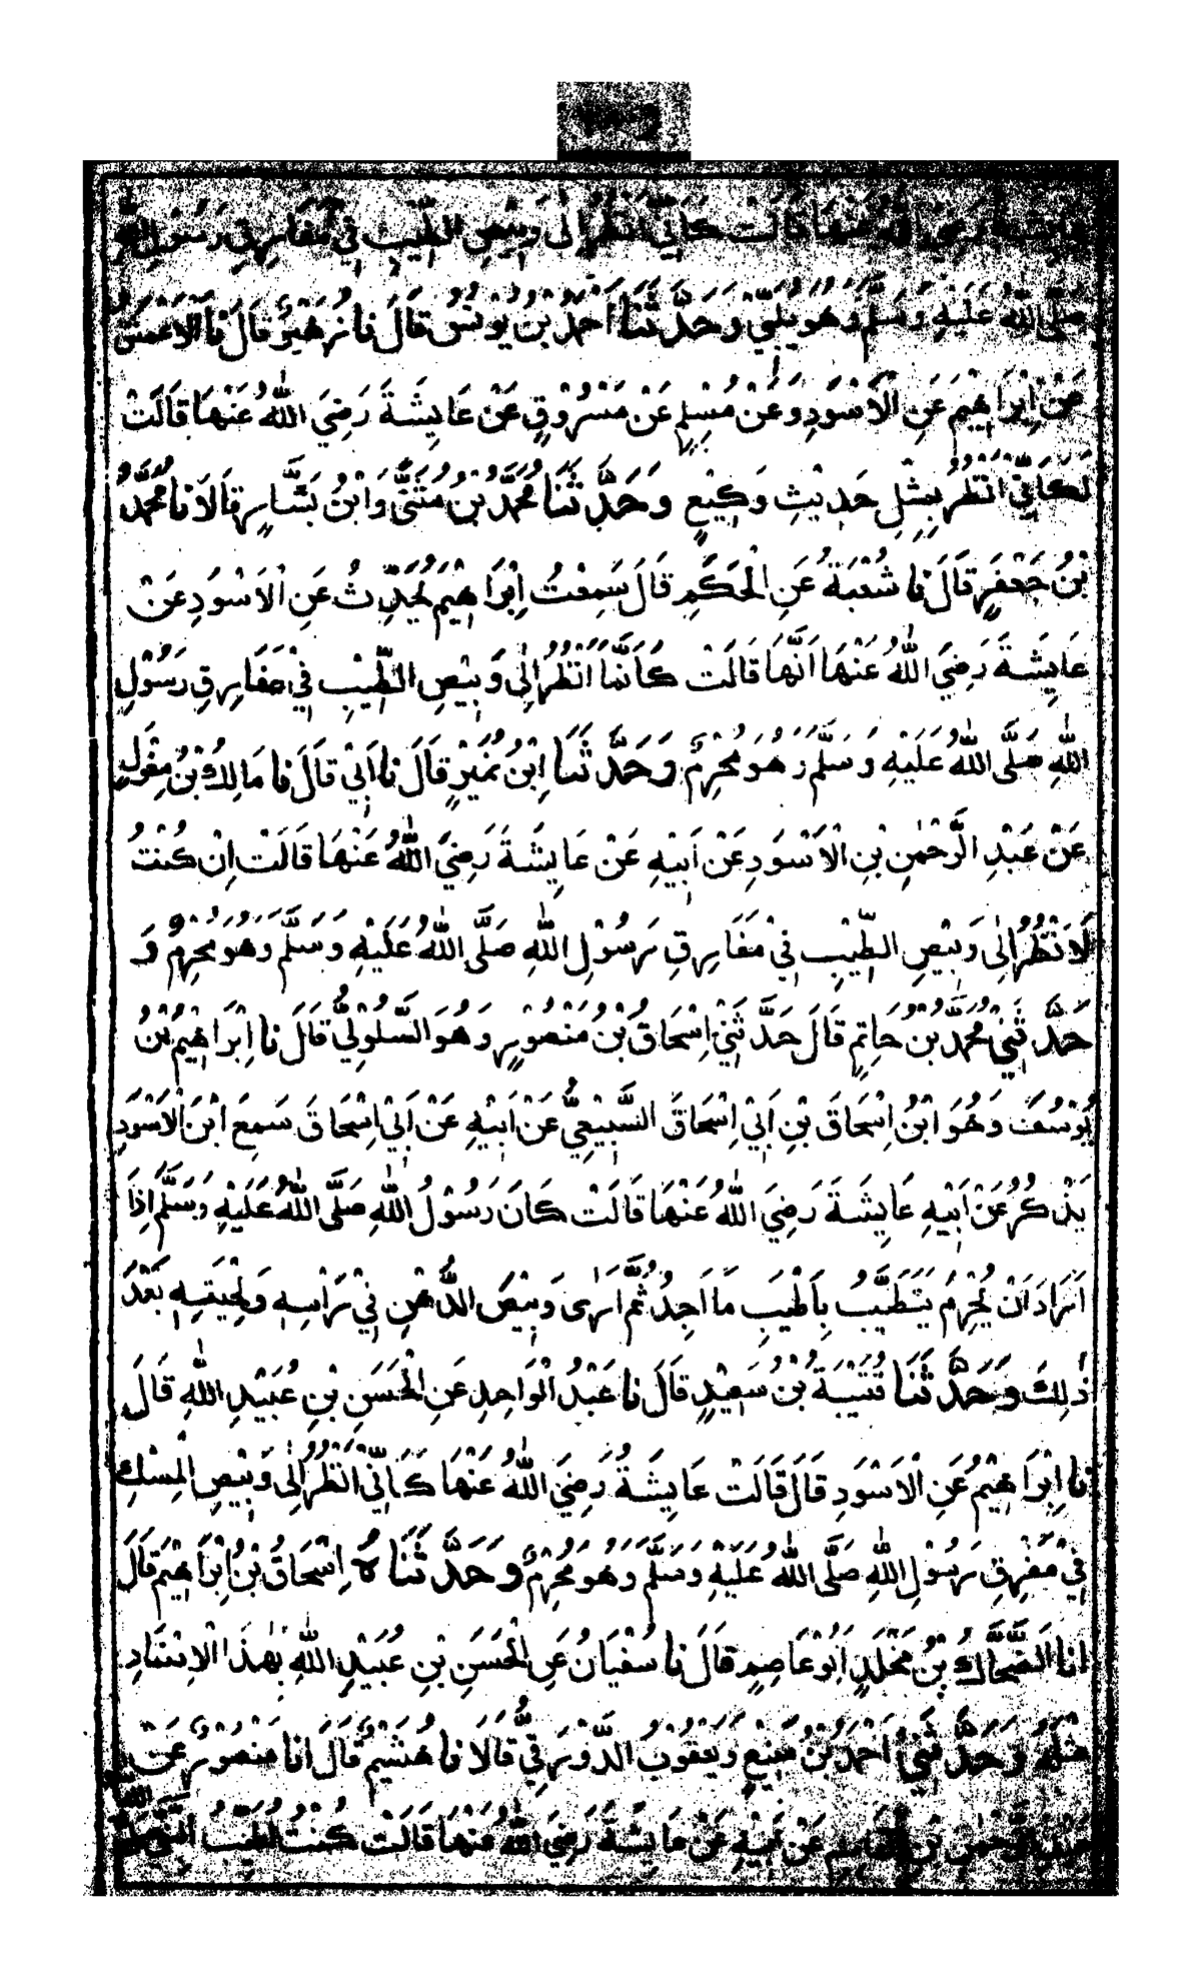 عَايِشَةَ رَضِيَ اللّٰهُ عَنْهَا قَالَتْ كَاَنِّيْ اَنْظُرُ اِلٰى وَبِيْصِ الطِّيْبِ فِيْ مَفَارِقِ رَسُوْلِ اللّٰهِ
صَلَّى اللّٰهُ عَلَيْهِ وَسَلَّمَ وَهُوَ يُلَبِّيْ وَحَدَّثَنَا اَحْمَدُ بْنُ يُوْنُسَ قَالَ نَا زُهَيْرٌ قَالَ نَا الْاَعْمَشُ
عَنْ اِبْرَاهِيْمَ عَنِ الْاَسْوَدِ وَعَنْ مُسْلِمٍ عَنْ مَسْرُوْقٍ عَنْ عَايِشَةَ رَضِيَ اللّٰهُ عَنْهَا قَالَتْ
لَكَاَنِّيْ اَنْظُرُ بِمِثْلِ حَدِيْثِ وَكِيْعٍ وَحَدَّثَنَا مُحَمَّدُ بْنُ مُثَنًّى وَابْنُ بَشَّارٍ قَالَا نَا مُحَمَّدُ
بْنُ جَعْفَرٍ قَالَ نَا شُعْبَةُ عَنِ الْحَكَمِ قَالَ سَمِعْتُ اِبْرَاهِيْمَ يُحَدِّثُ عَنِ الْاَسْوَدِ عَنْ
عَايِشَةَ رَضِيَ اللّٰهُ عَنْهَا اَنَّهَا قَالَتْ كَاَنَّمَا اَنْظُرُ اِلٰى وَبِيْصِ الطِّيْبِ فِيْ مَفَارِقِ رَسُوْلِ
اللّٰهِ صَلَّى اللّٰهُ عَلَيْهِ وَسَلَّمَ وَهُوَ مُحْرِمٌ وَحَدَّثَنَا ابْنُ نُمَيْرٍ قَالَ نَا اَبِيْ قَالَ نَا مَالِكُ بْنُ مِغْوَلٍ
عَنْ عَبْدِ الرَّحْمٰنِ بْنِ الْاَسْوَدِ عَنْ اَبِيْهِ عَنْ عَايِشَةَ رَضِيَ اللّٰهُ عَنْهَا قَالَتْ اِنْ كُنْتُ
لَاَنْظُرُ اِلٰى وَبِيْصِ الطِّيْبِ فِيْ مَفَارِقِ رَسُوْلِ اللّٰهِ صَلَّى اللّٰهُ عَلَيْهِ وَسَلَّمَ وَهُوَ مُحْرِمٌ وَ
حَدَّثَنِيْ مُحَمَّدُ بْنُ حَاتِمٍ قَالَ حَدَّثَنِيْ اِسْحَاقُ بْنُ مَنْصُوْرٍ وَهُوَ السَّلُوْلِيُّ قَالَ نَا اِبْرَاهِيْمُ بْنُ
يُوْسُفَ وَهُوَ ابْنُ اِسْحَاقَ بْنِ اَبِيْ اِسْحَاقَ السَّبِيْعِيُّ عَنْ اَبِيْهِ عَنْ اَبِيْ اِسْحَاقَ سَمِعَ ابْنَ الْاَسْوَدِ
يَذْكُرُ عَنْ اَبِيْهِ عَايِشَةَ رَضِيَ اللّٰهُ عَنْهَا قَالَتْ كَانَ رَسُوْلُ اللّٰهِ صَلَّى اللّٰهُ عَلَيْهِ وَسَلَّمَ اِذَا
اَرَادَ اَنْ يُحْرِمَ يَتَطَيَّبُ بِاَطْيَبِ مَا اَجِدُ ثُمَّ اَرٰى وَبِيْصَ الدُّهْنِ فِيْ رَاْسِهٖ وَلِحْيَتِهٖ بَعْدَ
ذٰلِكَ وَحَدَّثَنَا قُتَيْبَةُ بْنُ سَعِيْدٍ قَالَ نَا عَبْدُ الْوَاحِدِ عَنِ الْحَسَنِ بْنِ عُبَيْدِ اللّٰهِ قَالَ
نَا اِبْرَاهِيْمُ عَنِ الْاَسْوَدِ قَالَ قَالَتْ عَايِشَةُ رَضِيَ اللّٰهُ عَنْهَا كَاَنِّيْ اَنْظُرُ اِلٰى وَبِيْصِ الْمِسْكِ
فِيْ مَفْرِقِ رَسُوْلِ اللّٰهِ صَلَّى اللّٰهُ عَلَيْهِ وَسَلَّمَ وَهُوَ مُحْرِمٌ وَحَدَّثَنَاهُ اِسْحَاقُ بْنُ اِبْرَاهِيْمَ قَالَ
اَنَا الضَّحَّاكُ بْنُ مَخْلَدٍ اَبُوْ عَاصِمٍ قَالَ نَا سُفْيَانُ عَنِ الْحَسَنِ بْنِ عُبَيْدِ اللّٰهِ بِهٰذَا الْاِسْنَادِ
مِثْلَهُ وَحَدَّثَنِيْ اَحْمَدُ بْنُ مَنِيْعٍ وَيَعْقُوْبُ الدَّوْرَقِيُّ قَالَا نَا هُشَيْمٌ قَالَ اَنَا مَنْصُوْرٌ عَنْ
عَبْدِ الرَّحْمٰنِ بْنِ الْقَاسِمِ عَنْ اَبِيْهِ عَنْ عَايِشَةَ رَضِيَ اللّٰهُ عَنْهَا قَالَتْ كُنْتُ اُطَيِّبُ النَّبِيَّ